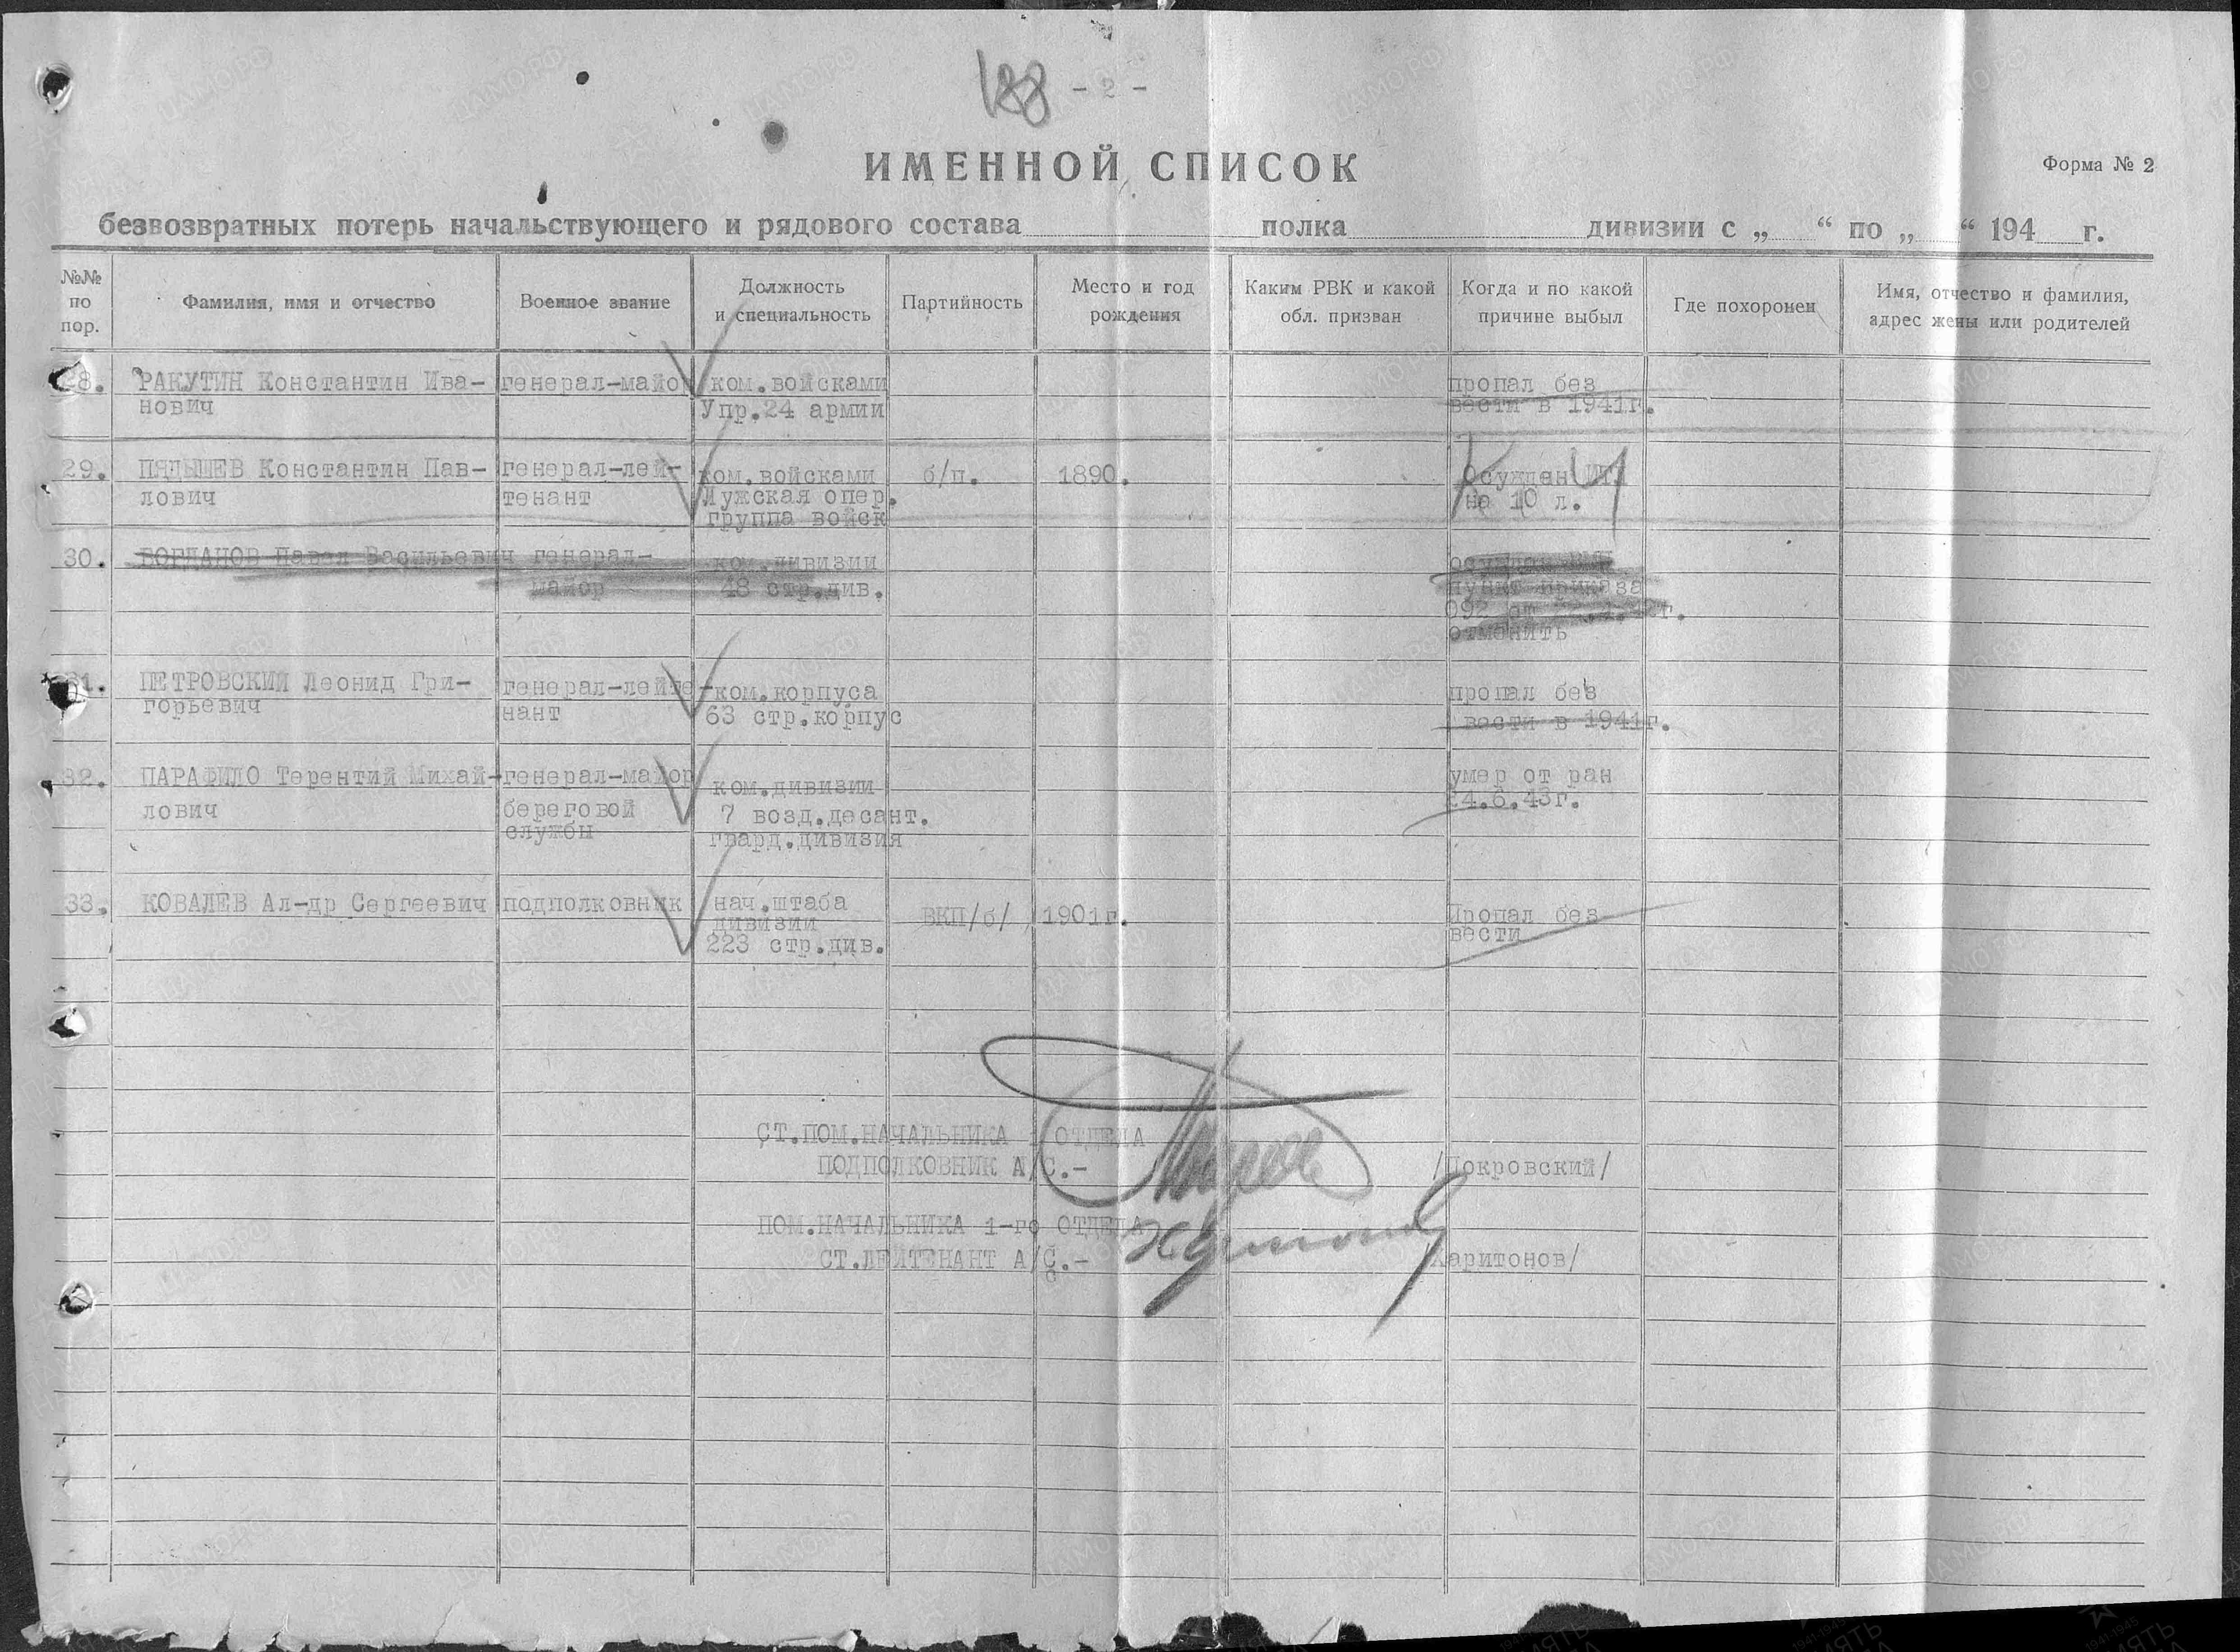 188 - 2 -
ИМЕННОЙ СПИСОК
Форма № 2
безвозвратных потерь начальствующего и рядового состава полка дивизии с „ “ по „ “ 194 г.
№№ по пор.
Фамилия, имя и отчество
Военное звание
Должность и специальность
Партийность
Место и год рождения
Каким РВК и какой обл. призван
Когда и по какой причине выбыл
Где похоронен
Имя, отчество и фамилия, адрес жены или родителей
28. РАКУТИН Константин Ива- генерал-майор ком.войсками пропал без
нович Упр.24 армии вести в 1941г.
29. ПЯДЫШЕВ Константин Пав- генерал-лей- ком.войсками б/п. 1890. Осужден
лович тенант Лужская опер. на 10 л.
группа войск
30. БОГДАНОВ Павел Васильевич генерал- ком.дивизии
майор 48 стр.див. пункт приказа
092 от
отменить
31. ПЕТРОВСКИЙ Леонид Гри- генерал-лейте- ком.корпуса пропал без
горьевич нант 63 стр.корпус вести в 1941г.
32. ПАРАФИЛО Терентий Михай- генерал-майор ком.дивизии умер от ран
лович береговой 7 возд.десант. 24.6.43г.
службы гвард.дивизия
33. КОВАЛЕВ Ал-др Сергеевич подполковник нач.штаба ВКП/б/ 1901г. Пропал без
дивизии вести
223 стр.див.
СТ.ПОМ.НАЧАЛЬНИКА 1 ОТДЕЛА
ПОДПОЛКОВНИК А/С.- /Покровский/
ПОМ.НАЧАЛЬНИКА 1-го ОТДЕЛА
СТ.ЛЕЙТЕНАНТ А/С.- /Харитонов/